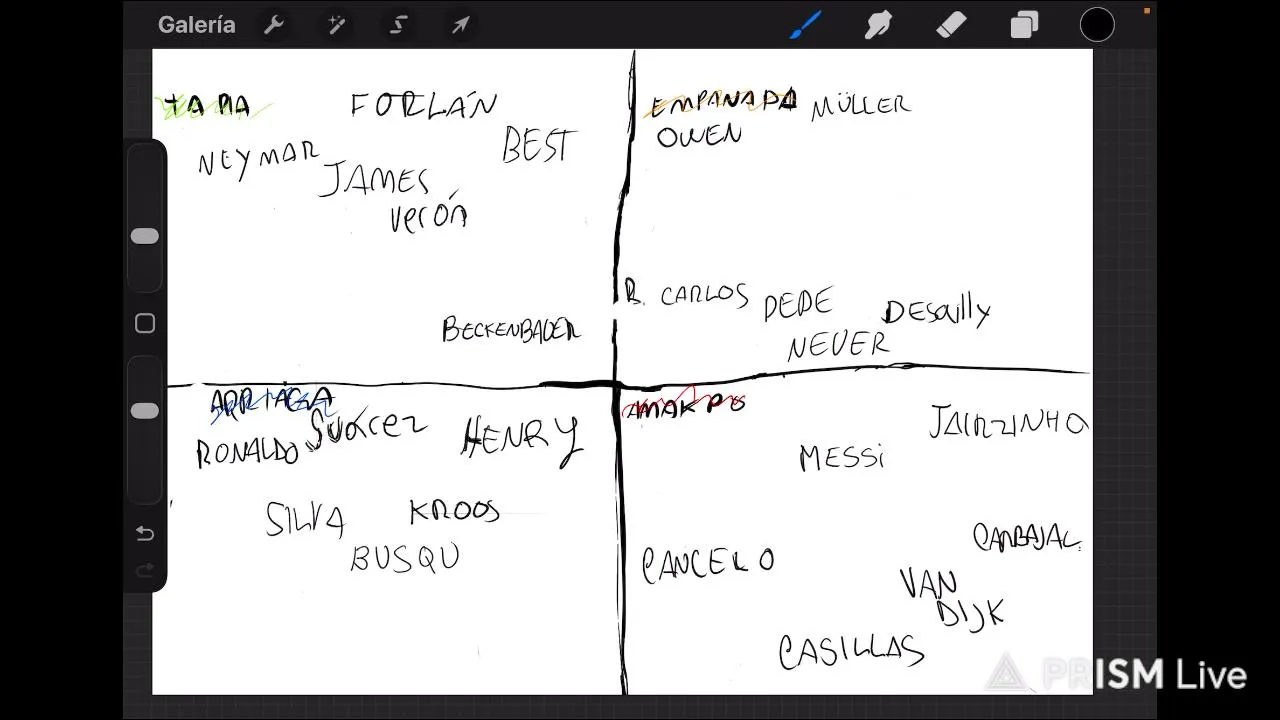 Galería
TAPIA
FORLÁN
BEST
NEYMAR
JAMES
verón
BECKENBAUER
EMPANADA MÜLLER
OWEN
R. CARLOS
PEPE
Desailly
NEUER
ARRIAGA
Suárez
HENRY
RONALDO
SILVA
KROOS
BUSQU
JAIRZINHO
MESSI
CARBAJAL
CANCELO
VAN
DIJK
CASILLAS
PRISM Live